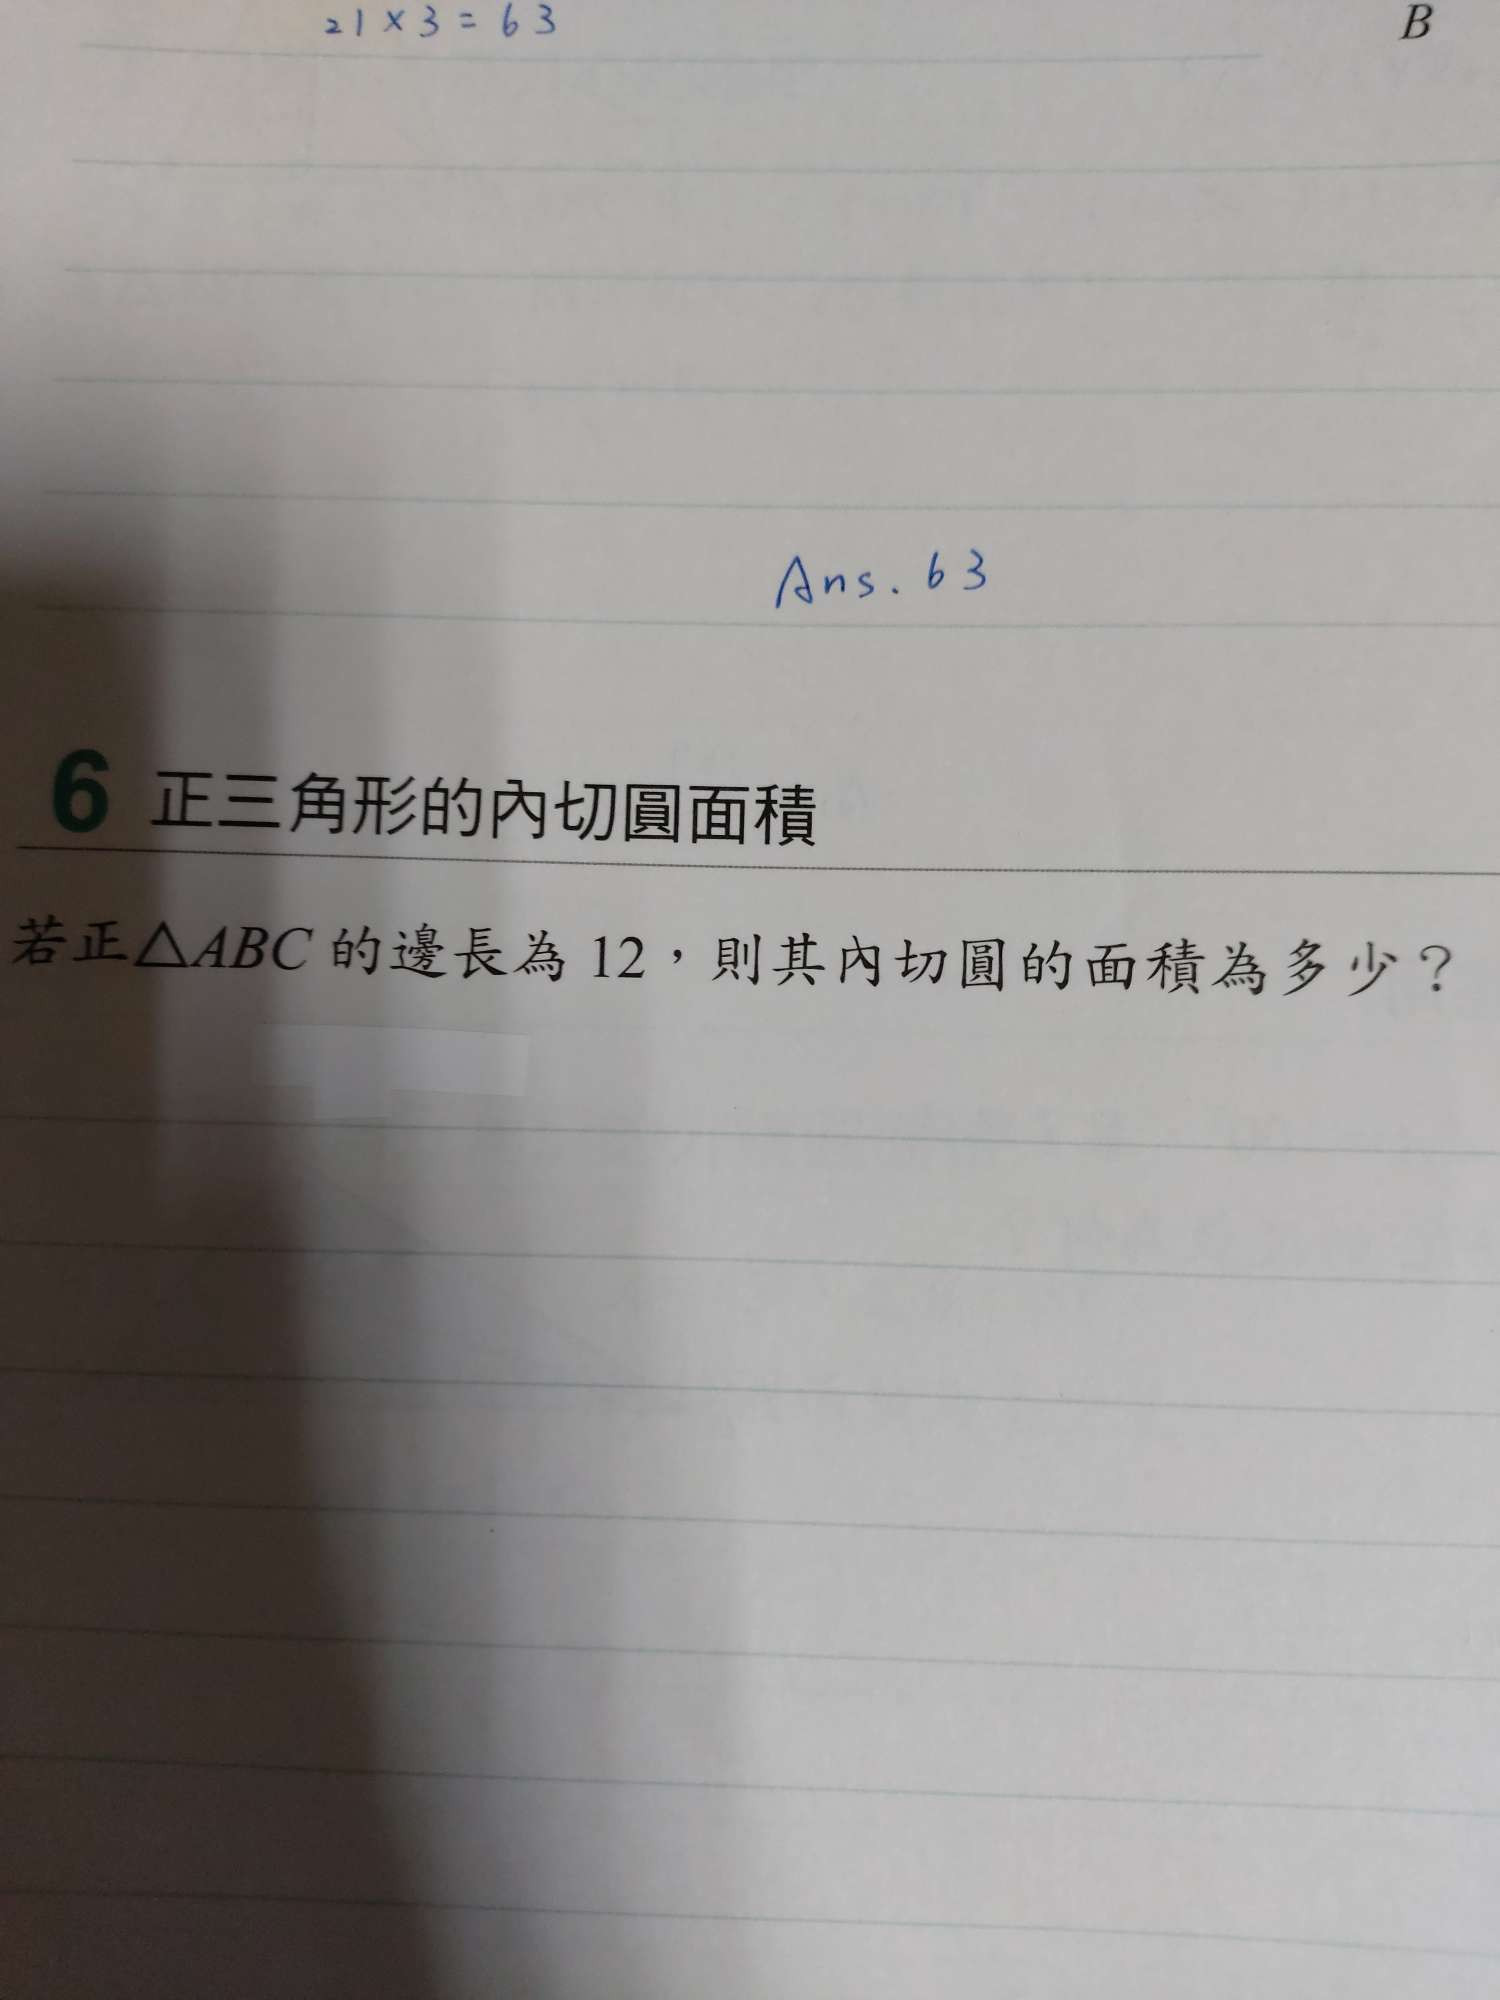 21×3=63
B
Ans. 63
6 正三角形的內切圓面積
若正△ABC 的邊長為 12，則其內切圓的面積為多少？